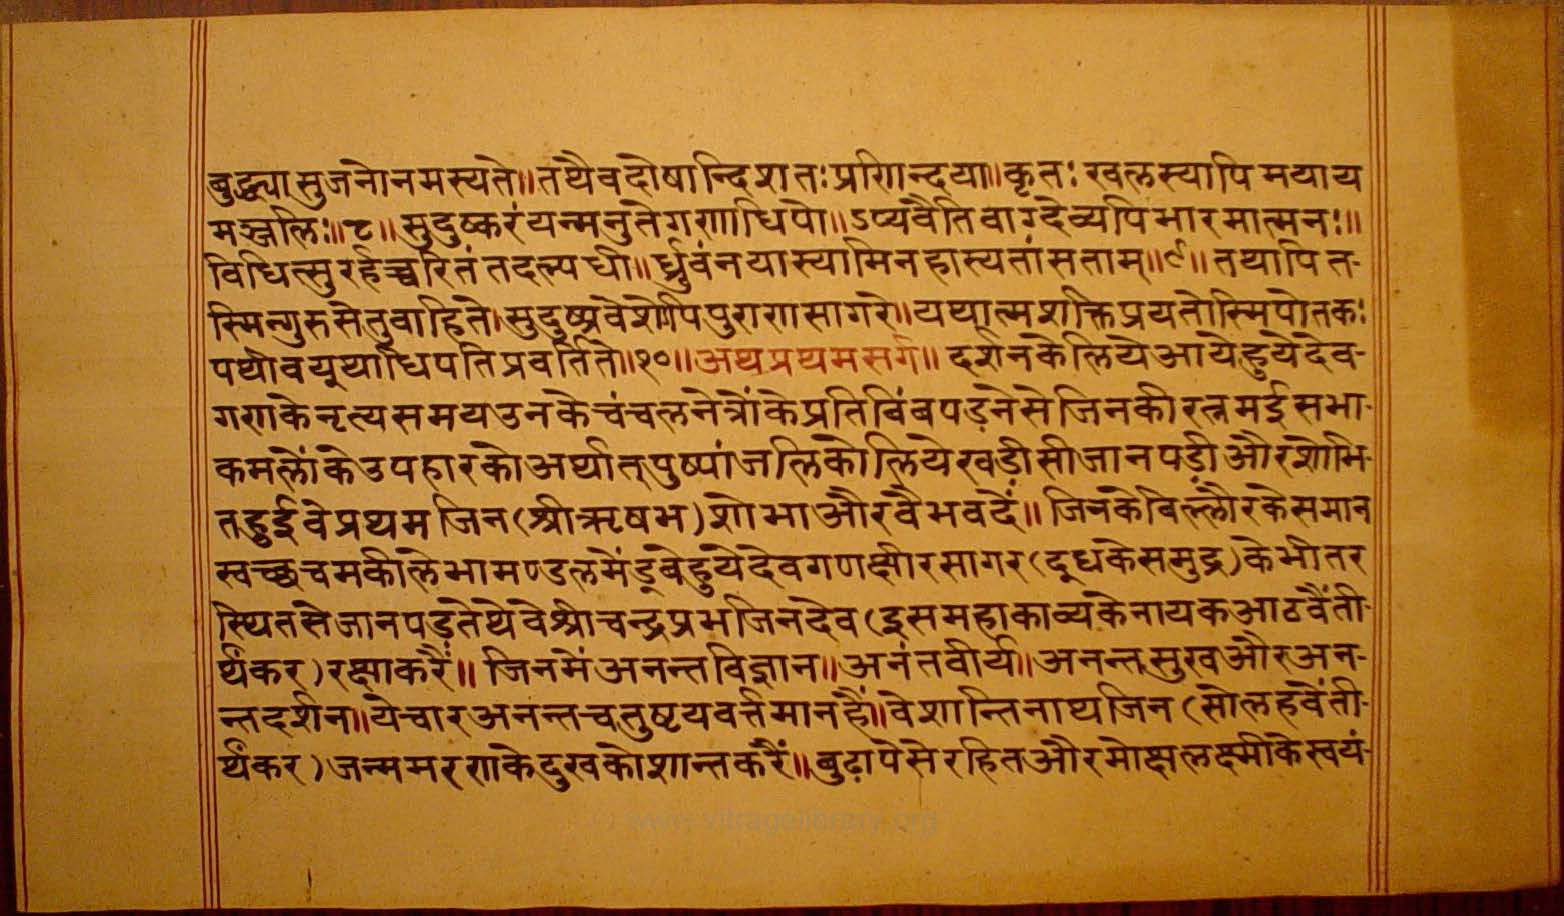 बुद्ध्या सुजनो नमस्यते॥ तथैव दोषान्दिशतः प्रणिन्दया॥ कृतः खलस्यापि मयाय
मञ्जलिः॥८॥ सुदुष्करं यन्मनुते गणाधिपो॥ ऽप्यवैति वाग्देव्यपि भारमात्मनः॥
विधित्सुरर्हच्चरितं तदल्पधी॥ र्ध्रुवं न यास्यामि न हास्यतां सताम्॥९॥ तथापि त-
स्मिन्गुरुसेतुवाहिते। सुदुष्प्रवेशेपि पुराणसागरे॥ यथात्मशक्ति प्रयतोस्मि पोतकः
पथीव यूथाधिपति प्रवर्तिते॥१०॥ अथ प्रथम सर्ग॥ दर्शन के लिये आये हुये देव-
गण के नृत्य समय उनके चंचल नेत्रों के प्रतिबिंब पड़ने से जिनकी रत्नमई सभा-
कमलों के उपहार को अर्थात् पुष्पांजलि को लिये खड़ी सी जान पड़ी और शोभि-
त हुई वे प्रथम जिन (श्री ऋषभ) शोभा और वैभव दें॥ जिनके बिल्लौर के समान
स्वच्छ चमकीले भामण्डल में डूबे हुये देवगण क्षीर सागर (दूध के समुद्र) के भीतर
स्थित से जान पड़ते थे वे श्री चन्द्रप्रभ जिनदेव (इस महाकाव्य के नायक आठवैं ती-
र्थंकर) रक्षा करैं॥ जिनमें अनन्त विज्ञान॥ अनंत वीर्य॥ अनन्त सुख और अन-
न्त दर्शन॥ ये चार अनन्त चतुष्टय वर्त्तमान हैं॥ वे शान्तिनाथ जिन (सोलहवें ती-
र्थंकर) जन्म मरण के दुख को शान्त करैं॥ बुढ़ापे से रहित और मोक्ष लक्ष्मी के स्वयं-
www.vitragelibrary.org